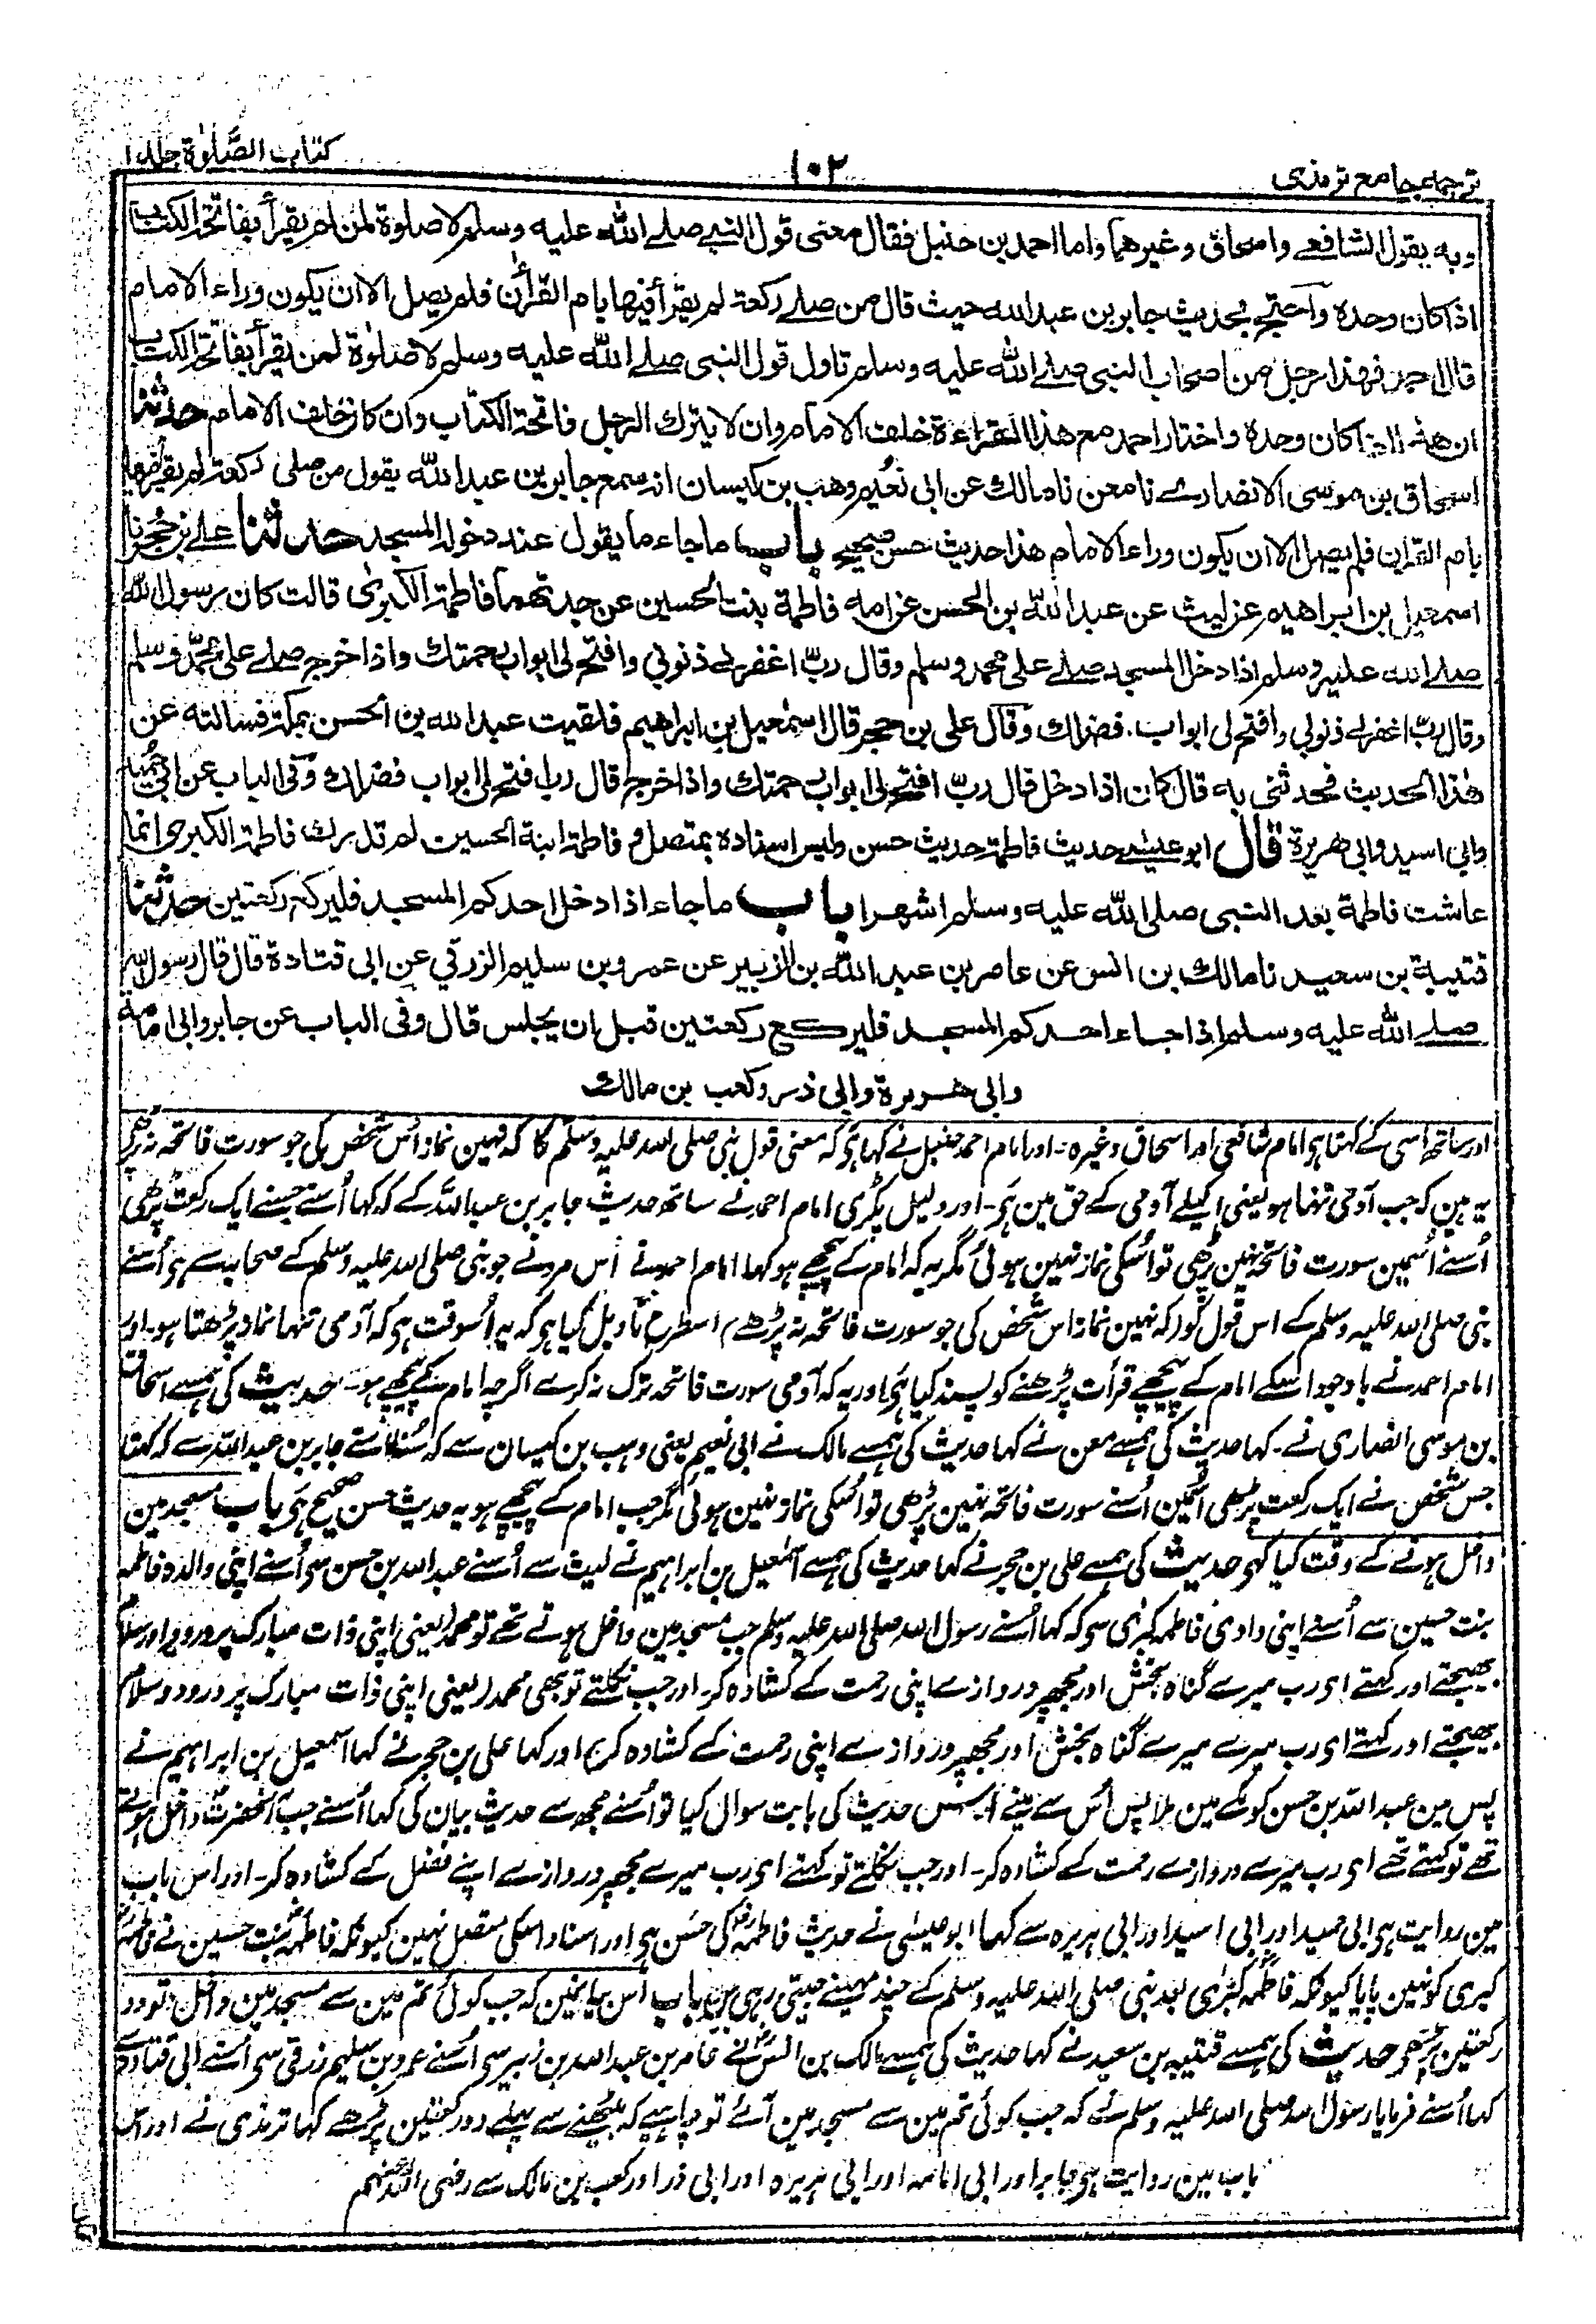 ترجمہ جامع ترمذی
۱۰۲
کتاب الصّلوٰة جلد ۱
وبه يقول الشافعے واسحاق وغيرهما واما احمد بن حنبل فقال معنى قول النبے صلے الله عليه وسلم لا صلوة لمن لم يقرأ بفاتحة الكتاب
اذا كان وحده واحتج بحديث جابر بن عبد الله حيث قال من صلے ركعة لم يقرأ فيها بام القرأن فلم يصل الا ان يكون وراء الامام
قال احمد فهذا رجل من اصحاب النبى صلے الله عليه وسلم تاول قول النبى صلے الله عليه وسلم لا صلوٰة لمن لم يقرأ بفاتحة الكتاب
ان هذا اذا كان وحده واختار احمد مع هذا القراءة خلف الامام وان لا يترك الرجل فاتحة الكتاب وان كان خلف الامام حدثنا
اسحاق بن موسى الانصارے نا معن نا مالك عن ابى نُعَيم وهب بن كيسان انه سمع جابر بن عبد الله يقول من صلى ركعة لم يقرأ فيها
بام القرأن فلم يصل الا ان يكون وراء الامام هذا حديث حسن صحيح باب ما جاء ما يقول عند دخوله المسجد حدثنا علے بن حُجر نا
اسمعيل بن ابراهيم عن ليث عن عبد الله بن الحسن عن امه فاطمة بنت الحسين عن جدتها فاطمة الكبرىٰ قالت كان رسول الله
صلے الله عليه وسلم اذا دخل المسجد صلے على محمد وسلم وقال ربّ اغفر لے ذنوبي وافتح لى ابواب رحمتك واذا خرج صلے على محمّد وسلم
وقال ربّ اغفر لے ذنوبي وافتح لى ابواب فضلك وقال على بن حجر قال اسمٰعيل بن ابراهيم فلقيت عبد الله بن الحسن بمكة فسالته عن
هٰذا الحديث فحدثنى به قال كان اذا دخل قال ربّ افتح لى ابواب رحمتك واذا خرج قال رب افتح لى ابواب فضلك وفى الباب عن ابى حُميد
وابي اسيد وابى هريرة قال ابو عيسٰے حديث فاطمة حديث حسن وليس اسناده بمتصل و فاطمة ابنة الحسين لم تدرك فاطمة الكبرى انما
عاشت فاطمة بعد النبى صلى الله عليه وسلم اشهرا باب ما جاء اذا دخل احدكم المسجد فليركع ركعتين حدثنا
قتيبة بن سعيد نا مالك بن انس عن عامر بن عبد الله بن الزبير عن عمرو بن سليم الزرقي عن ابى قتادة قال قال رسول الله
صلے الله عليه وسلم اذا جاء احدكم المسجد فليركع ركعتين قبل ان يجلس قال وفى الباب عن جابر وابى امامة
وابى هريرة وابى ذر وكعب بن مالك
اور ساتھ اسی کے کہتا ہی امام شافعی اور اسحاق وغیرہ۔ اور امام احمد حنبل نے کہا ہی کہ معنی قول نبی صلی اللہ علیہ وسلم کا کہ نہین نماز اُس شخص کی جو سورت فاتحہ نہ پڑھے
یہ ہین کہ جب آدمی تنہا ہو یعنی اکیلے آدمی کے حق مین ہی۔ اور دلیل پکڑی امام احمد نے ساتھ حدیث جابر بن عبداللہ کے کہ کہا اُسنے جسنے ایک رکعت پڑھی
اُسنے اُسمین سورت فاتحہ نہین پڑھی تو اُسکی نماز نہین ہوئی مگر یہ کہ امام کے پیچھے ہو کہا امام احمد نے اُس مرد نے جو نبی صلی اللہ علیہ وسلم کے صحابیسے ہی اُسنے
نبی صلی اللہ علیہ وسلم کے اس قول کو (کہ نہین نماز اس شخص کی جو سورت فاتحہ نہ پڑھے) اسطرح تاویل کیا ہی کہ یہ اُسوقت ہی کہ آدمی تنہا نماز پڑھتا ہو۔ اور
امام احمد نے باوجود اسکے امام کے پیچھے قرأت پڑھنے کو پسند کیا ہی اور یہ کہ آدمی سورت فاتحہ ترک نہ کرے اگرچہ امام کے پیچھے ہو۔ حدیث کی ہمسے اسحاق
بن موسی انصاری نے۔ کہا حدیث کی ہمسے معن نے کہا حدیث کی ہمسے مالک نے ابی نعیم یعنی وہب بن کیسان سے کہ سُنا اُسنے جابر بن عبداللہ سے کہ کہتا
جس شخص نے ایک رکعت پڑھی اُسمین اُسنے سورت فاتحہ نہین پڑھی تو اُسکی نماز نہین ہوئی مگر جب امام کے پیچھے ہو یہ حدیث حسن صحیح ہی باب مسجد مین
داخل ہونے کے وقت کیا کہے حدیث کی ہمسے علی بن حجر نے کہا حدیث کی ہمسے اسمٰعیل بن ابراہیم نے لیث سے اُسنے عبداللہ بن حسن سے اُسنے اپنی والدہ فاطمہ
بنت حسین سے اُسنے اپنی دادی فاطمہ کبرٰی سی کہ کہا اُسنے رسول اللہ صلی اللہ علیہ وسلم جب مسجد مین داخل ہوتے تھے تو محمد (یعنی اپنی ذات مبارک پر درود) اور سلام
بھیجتے اور کہتے ای رب میرے گناہ بخش اور مجھپر دروازے اپنی رحمت کے کشادہ کر۔ اور جب نکلتے تو بھی محمد (یعنی اپنی ذات مبارک پر درود و سلام
بھیجتے اور کہتے ای رب میرے میرے گناہ بخش اور مجھپر دروازے اپنی رحمت کے کشادہ کر۔ اور کہا علی بن حجر نے کہا اسمٰعیل بن ابراہیم نے
پس مین عبداللہ بن حسن کو مکے مین ملا پس اُس سے مینے اس حدیث کی بابت سوال کیا تو اُسنے مجھ سے حدیث بیان کی کہا اُسنے جب آنحضرت داخل ہوتے
تھے تو کہتے تھے ای رب میرے دروازے رحمت کے کشادہ کر۔ اور جب نکلتے تو کہتے ای رب میرے مجھپر دروازے اپنے فضل کے کشادہ کر۔ اور اس باب
مین روایت ہی ابی حمید اور ابی اسید اور ابی ہریرہ سے کہا ابو عیسٰی نے حدیث فاطمہ کی حسن ہی اور اسناد اسکی متصل نہین کیونکہ فاطمہ بنت حسین نے فاطمہ
کبری کو نہین پایا کیونکہ فاطمہ کبرٰی بعد نبی صلی اللہ علیہ وسلم کے چند مہینے جیتی رہی ہین باب اس بیانمین کہ جب کوئی تم مین سے مسجد مین داخل ہو تو دو
رکعتین پڑھے حدیث کی ہمسے قتیبہ بن سعید نے کہا حدیث کی ہمسے مالک بن انس نے عامر بن عبداللہ بن زبیر سی اُسنے عمرو بن سلیم زرقی سی اُسنے ابی قتادہ سے
کہا اُسنے فرمایا رسول اللہ صلی اللہ علیہ وسلم نے کہ جب کوئی تم مین سے مسجد مین آئے تو چاہیے کہ بیٹھنے سے پہلے دو رکعتین پڑھے کہا ترمذی نے اور اس
باب مین روایت ہی جابر اور ابی امامہ اور ابی ہریرہ اور ابی ذر اور کعب بن مالک سے رضی اللہ عنہم